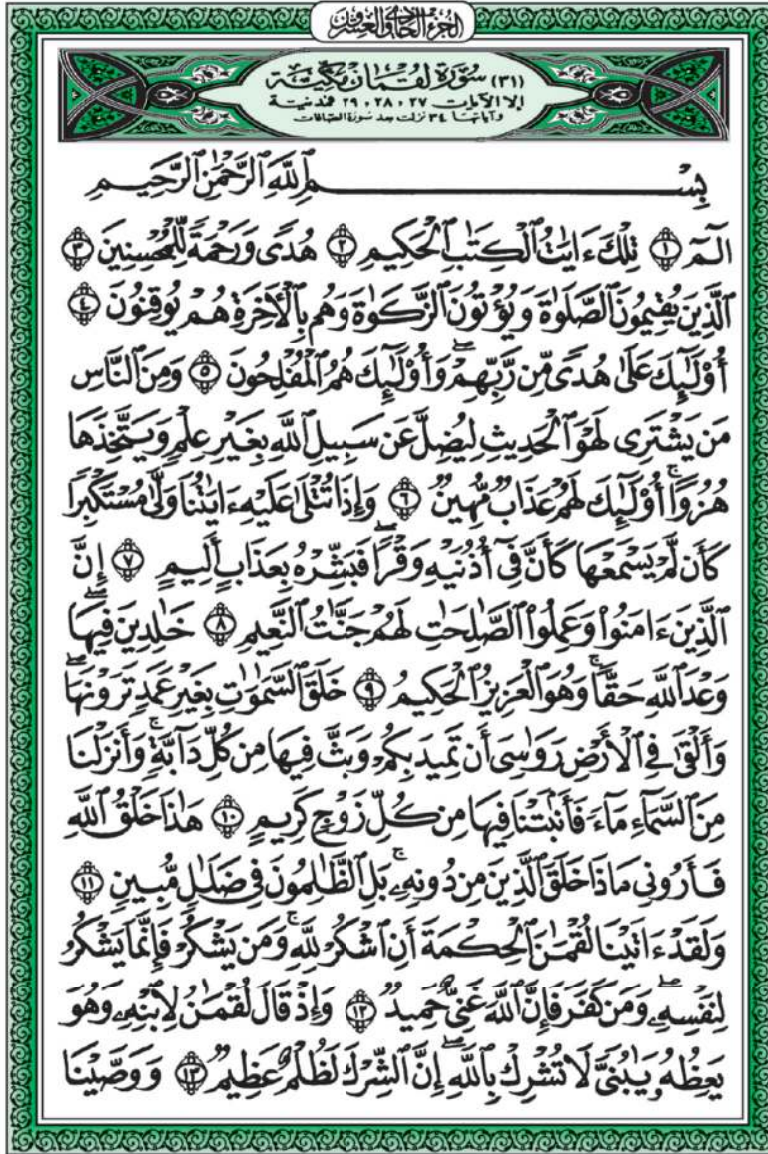 الجزء الحادي والعشرون
(٣١) سُورَة لقمَان مَكيَّة
إلا الآيات ٢٧ ، ٢٨ ، ٢٩ فمدنية
وآياتها ٣٤ نزلت بعد سُورة الصّافات
بِسْمِ ٱللَّهِ ٱلرَّحْمَٰنِ ٱلرَّحِيمِ
الٓمٓ ١ تِلْكَ ءَايَٰتُ ٱلْكِتَٰبِ ٱلْحَكِيمِ ٢ هُدًى وَرَحْمَةً لِّلْمُحْسِنِينَ ٣
ٱلَّذِينَ يُقِيمُونَ ٱلصَّلَوٰةَ وَيُؤْتُونَ ٱلزَّكَوٰةَ وَهُم بِٱلْأَخِرَةِ هُمْ يُوقِنُونَ ٤
أُوْلَٰٓئِكَ عَلَىٰ هُدًى مِّن رَّبِّهِمْ ۖ وَأُوْلَٰٓئِكَ هُمُ ٱلْمُفْلِحُونَ ٥ وَمِنَ ٱلنَّاسِ
مَن يَشْتَرِى لَهْوَ ٱلْحَدِيثِ لِيُضِلَّ عَن سَبِيلِ ٱللَّهِ بِغَيْرِ عِلْمٍ وَيَتَّخِذَهَا
هُزُوًا ۚ أُوْلَٰٓئِكَ لَهُمْ عَذَابٌ مُّهِينٌ ٦ وَإِذَا تُتْلَىٰ عَلَيْهِ ءَايَٰتُنَا وَلَّىٰ مُسْتَكْبِرًا
كَأَن لَّمْ يَسْمَعْهَا كَأَنَّ فِىٓ أُذُنَيْهِ وَقْرًا ۖ فَبَشِّرْهُ بِعَذَابٍ أَلِيمٍ ٧ إِنَّ
ٱلَّذِينَ ءَامَنُوا۟ وَعَمِلُوا۟ ٱلصَّٰلِحَٰتِ لَهُمْ جَنَّٰتُ ٱلنَّعِيمِ ٨ خَٰلِدِينَ فِيهَا ۖ
وَعْدَ ٱللَّهِ حَقًّا ۚ وَهُوَ ٱلْعَزِيزُ ٱلْحَكِيمُ ٩ خَلَقَ ٱلسَّمَٰوَٰتِ بِغَيْرِ عَمَدٍ تَرَوْنَهَا ۖ
وَأَلْقَىٰ فِى ٱلْأَرْضِ رَوَٰسِىَ أَن تَمِيدَ بِكُمْ وَبَثَّ فِيهَا مِن كُلِّ دَآبَّةٍ ۚ وَأَنزَلْنَا
مِنَ ٱلسَّمَآءِ مَآءً فَأَنۢبَتْنَا فِيهَا مِن كُلِّ زَوْجٍ كَرِيمٍ ١٠ هَٰذَا خَلْقُ ٱللَّهِ
فَأَرُونِى مَاذَا خَلَقَ ٱلَّذِينَ مِن دُونِهِۦ ۚ بَلِ ٱلظَّٰلِمُونَ فِى ضَلَٰلٍ مُّبِينٍ ١١
وَلَقَدْ ءَاتَيْنَا لُقْمَٰنَ ٱلْحِكْمَةَ أَنِ ٱشْكُرْ لِلَّهِ ۚ وَمَن يَشْكُرْ فَإِنَّمَا يَشْكُرُ
لِنَفْسِهِۦ ۖ وَمَن كَفَرَ فَإِنَّ ٱللَّهَ غَنِىٌّ حَمِيدٌ ١٢ وَإِذْ قَالَ لُقْمَٰنُ لِٱبْنِهِۦ وَهُوَ
يَعِظُهُۥ يَٰبُنَىَّ لَا تُشْرِكْ بِٱللَّهِ ۖ إِنَّ ٱلشِّرْكَ لَظُلْمٌ عَظِيمٌ ١٣ وَوَصَّيْنَا